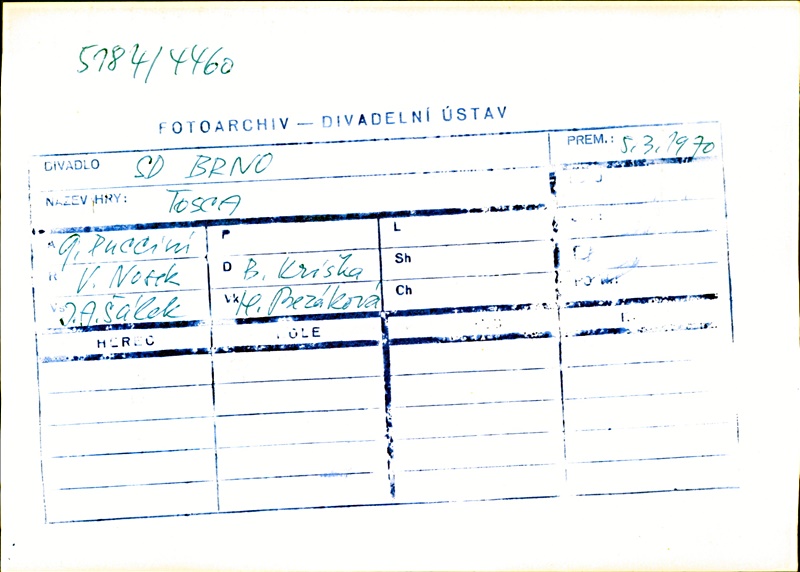 5184/4460
FOTOARCHIV — DIVADELNÍ ÚSTAV
DIVADLO SD BRNO PREM.: 5.3.1970
NÁZEV HRY: TOSCA
A G. Puccini P L
R V. Nosek D B. Kriška Sh
J.A. Šálek Vk H. Bezáková Ch
HEREC ROLE